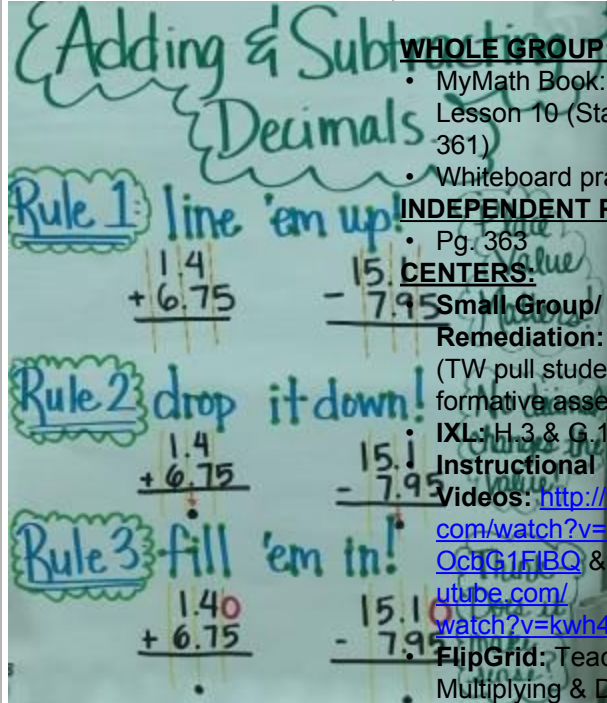 Adding & Subtracting
Decimals
Rule 1: line 'em up!
1.4
+ 6.75
15.1
- 7.95
Value
Matters!
Rule 2: drop it down!
1.4
+ 6.75
.
15.1
- 7.95
.
changes the
value
Rule 3: fill 'em in!
1.40
+ 6.75
.
15.10
- 7.95
.
Think
Does it
make
sense?
WHOLE GROUP
• MyMath Book:
Lesson 10 (Sta
361)
• Whiteboard pra
INDEPENDENT P
• Pg. 363
CENTERS:
• Small Group/
Remediation:
(TW pull stude
formative asse
• IXL: H.3 & G.1
• Instructional
Videos: http://
com/watch?v=
OcbG1FIBQ &
utube.com/
watch?v=kwh4
• FlipGrid: Teac
Multiplying & D